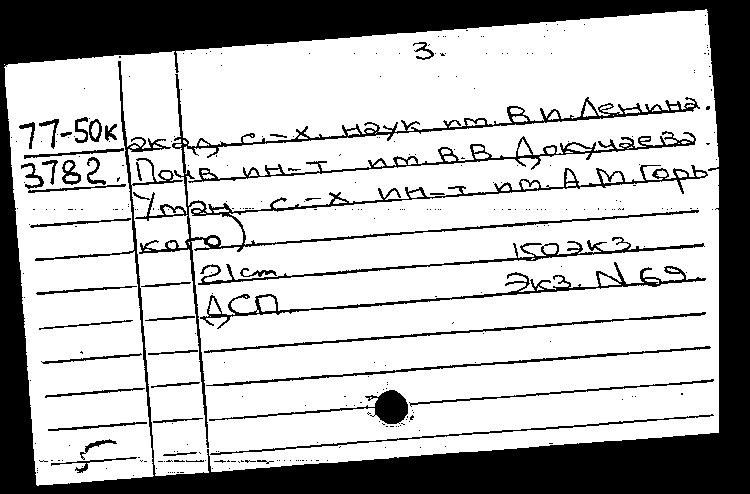 3.
77-50к акад. с.-х. наук им. В.И. Ленина.
3782. Почв. ин-т им. В.В. Докучаева.
Уман. с.-х. ин-т им. А.М. Горь-
кого).
21см. 150экз.
ДСП Экз. N 69
5